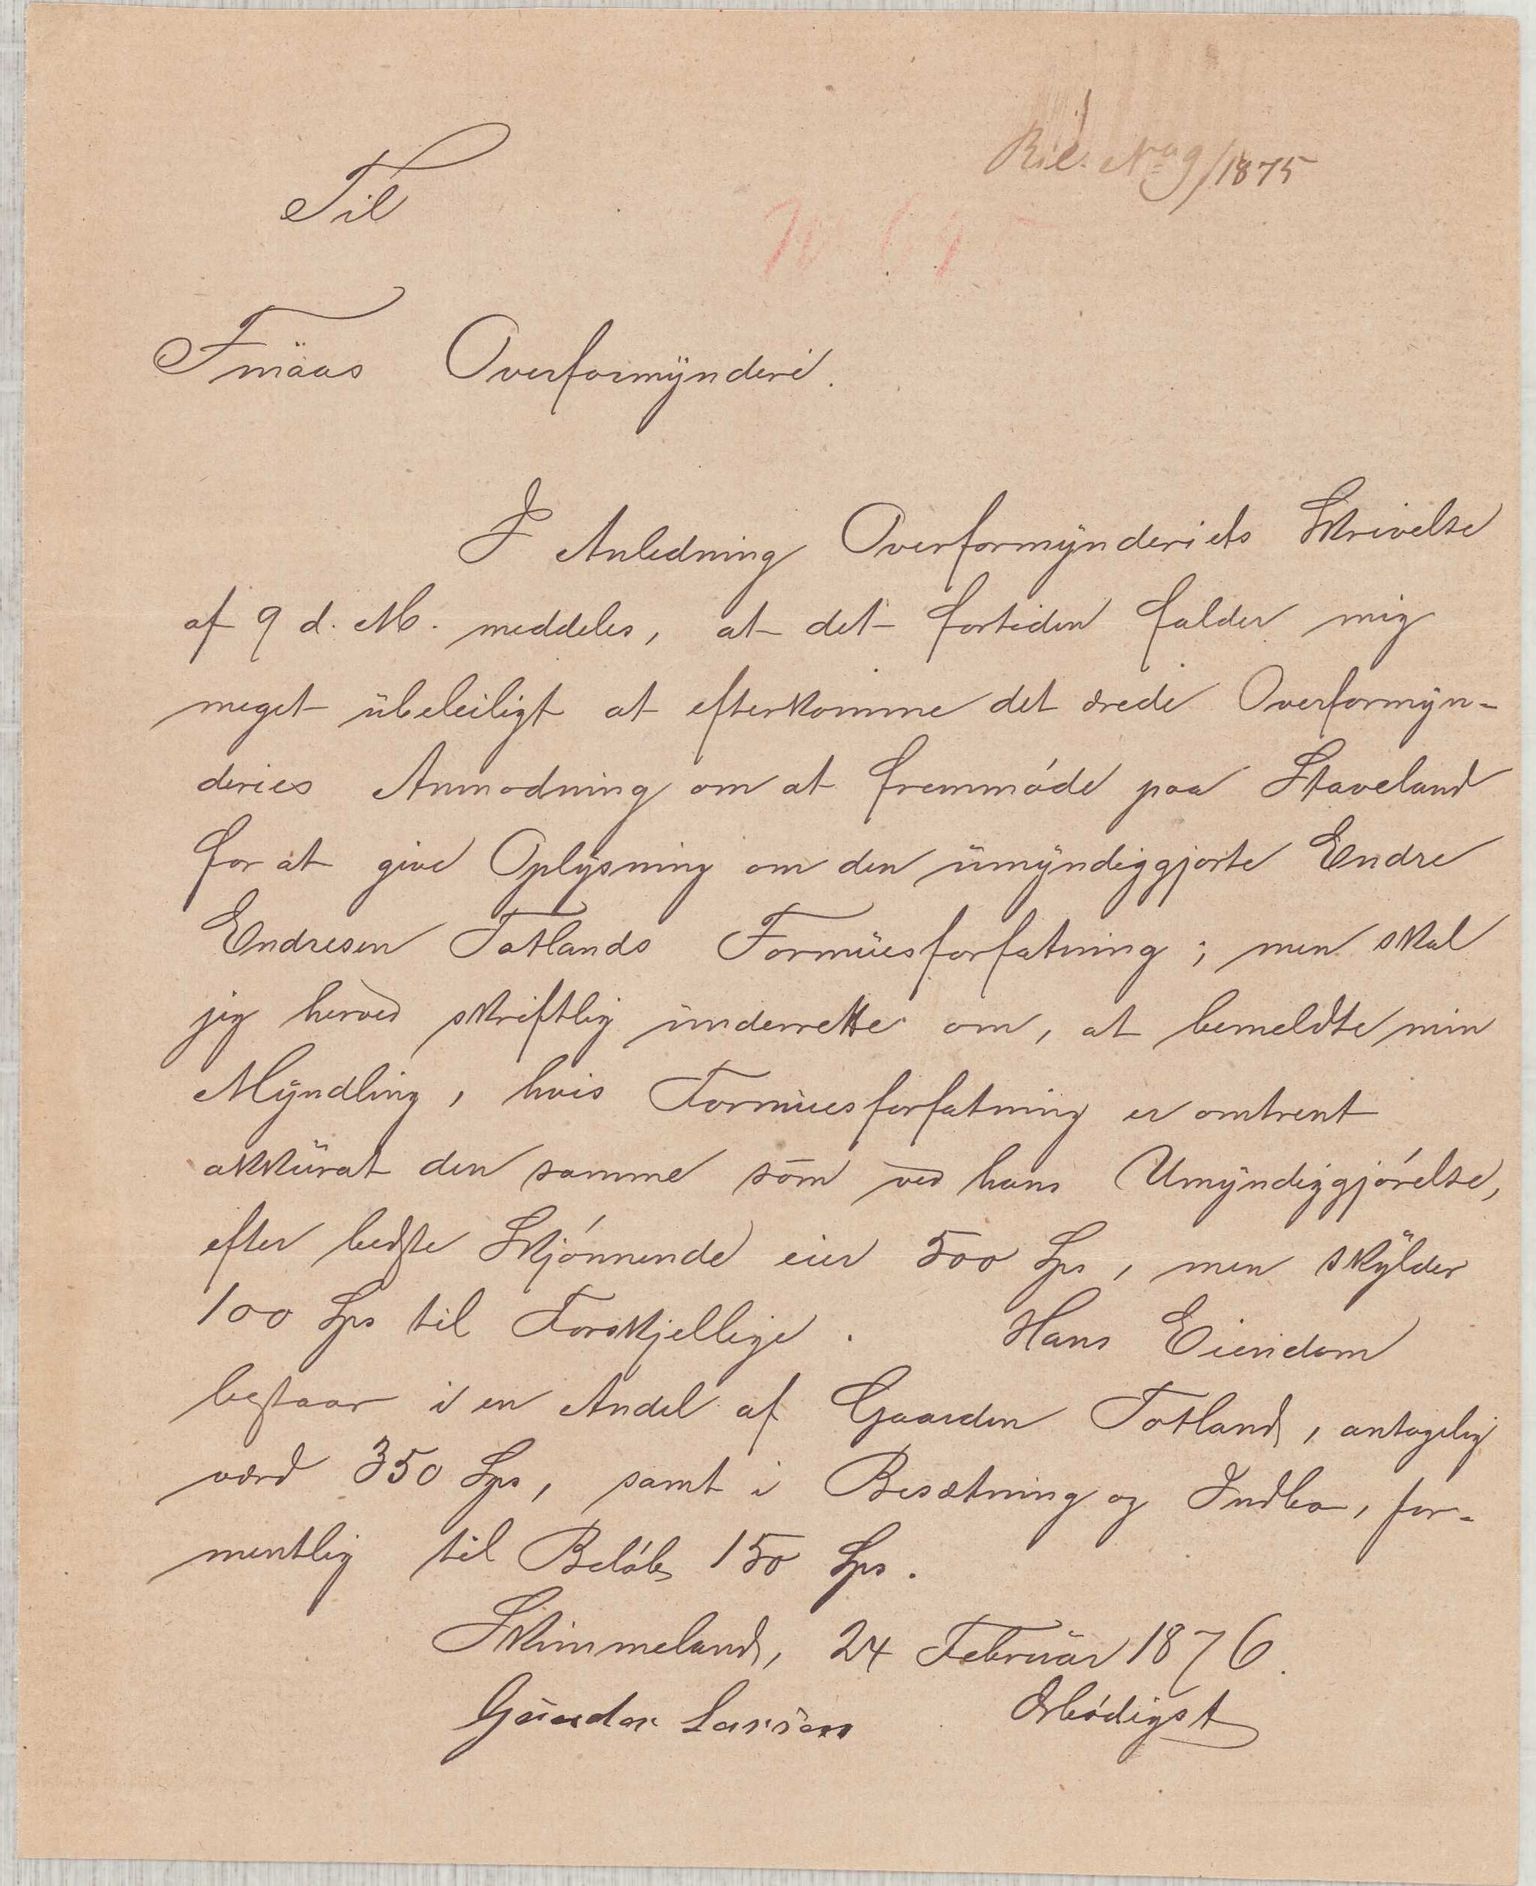 Bil. No 9/1875
Til
Finaas Overformynderi.
I Anledning Overformynderiets Skrivelse
af 9 d. M. meddeles, at det fortiden falder mig
meget ubeleiligt at efterkomme det ærede Overformyn-
deries Anmodning om at fremmøde paa Staveland
for at give Oplysning om den umyndiggjorte Endre
Endresen Totlands Formuesforfatning; men skal
jeg herved skriftlig underrette om, at bemeldte min
Myndling, hvis Formuesforfatning er omtrent
akkurat den samme som ved hans Umyndiggjørelse,
efter bedste Skjønnende eier 500 Sps, men skylder
100 Sps til Forskjellige. Hans Eiendom
bestaar i en Andel af Gaarden Totland, antagelig
værd 350 Sps, samt i Besætning og Indbo, for-
mentlig til Beløb 150 Sps.
Skimmeland, 24 Februar 1876.
Ærbødigst
Gunder Larsen